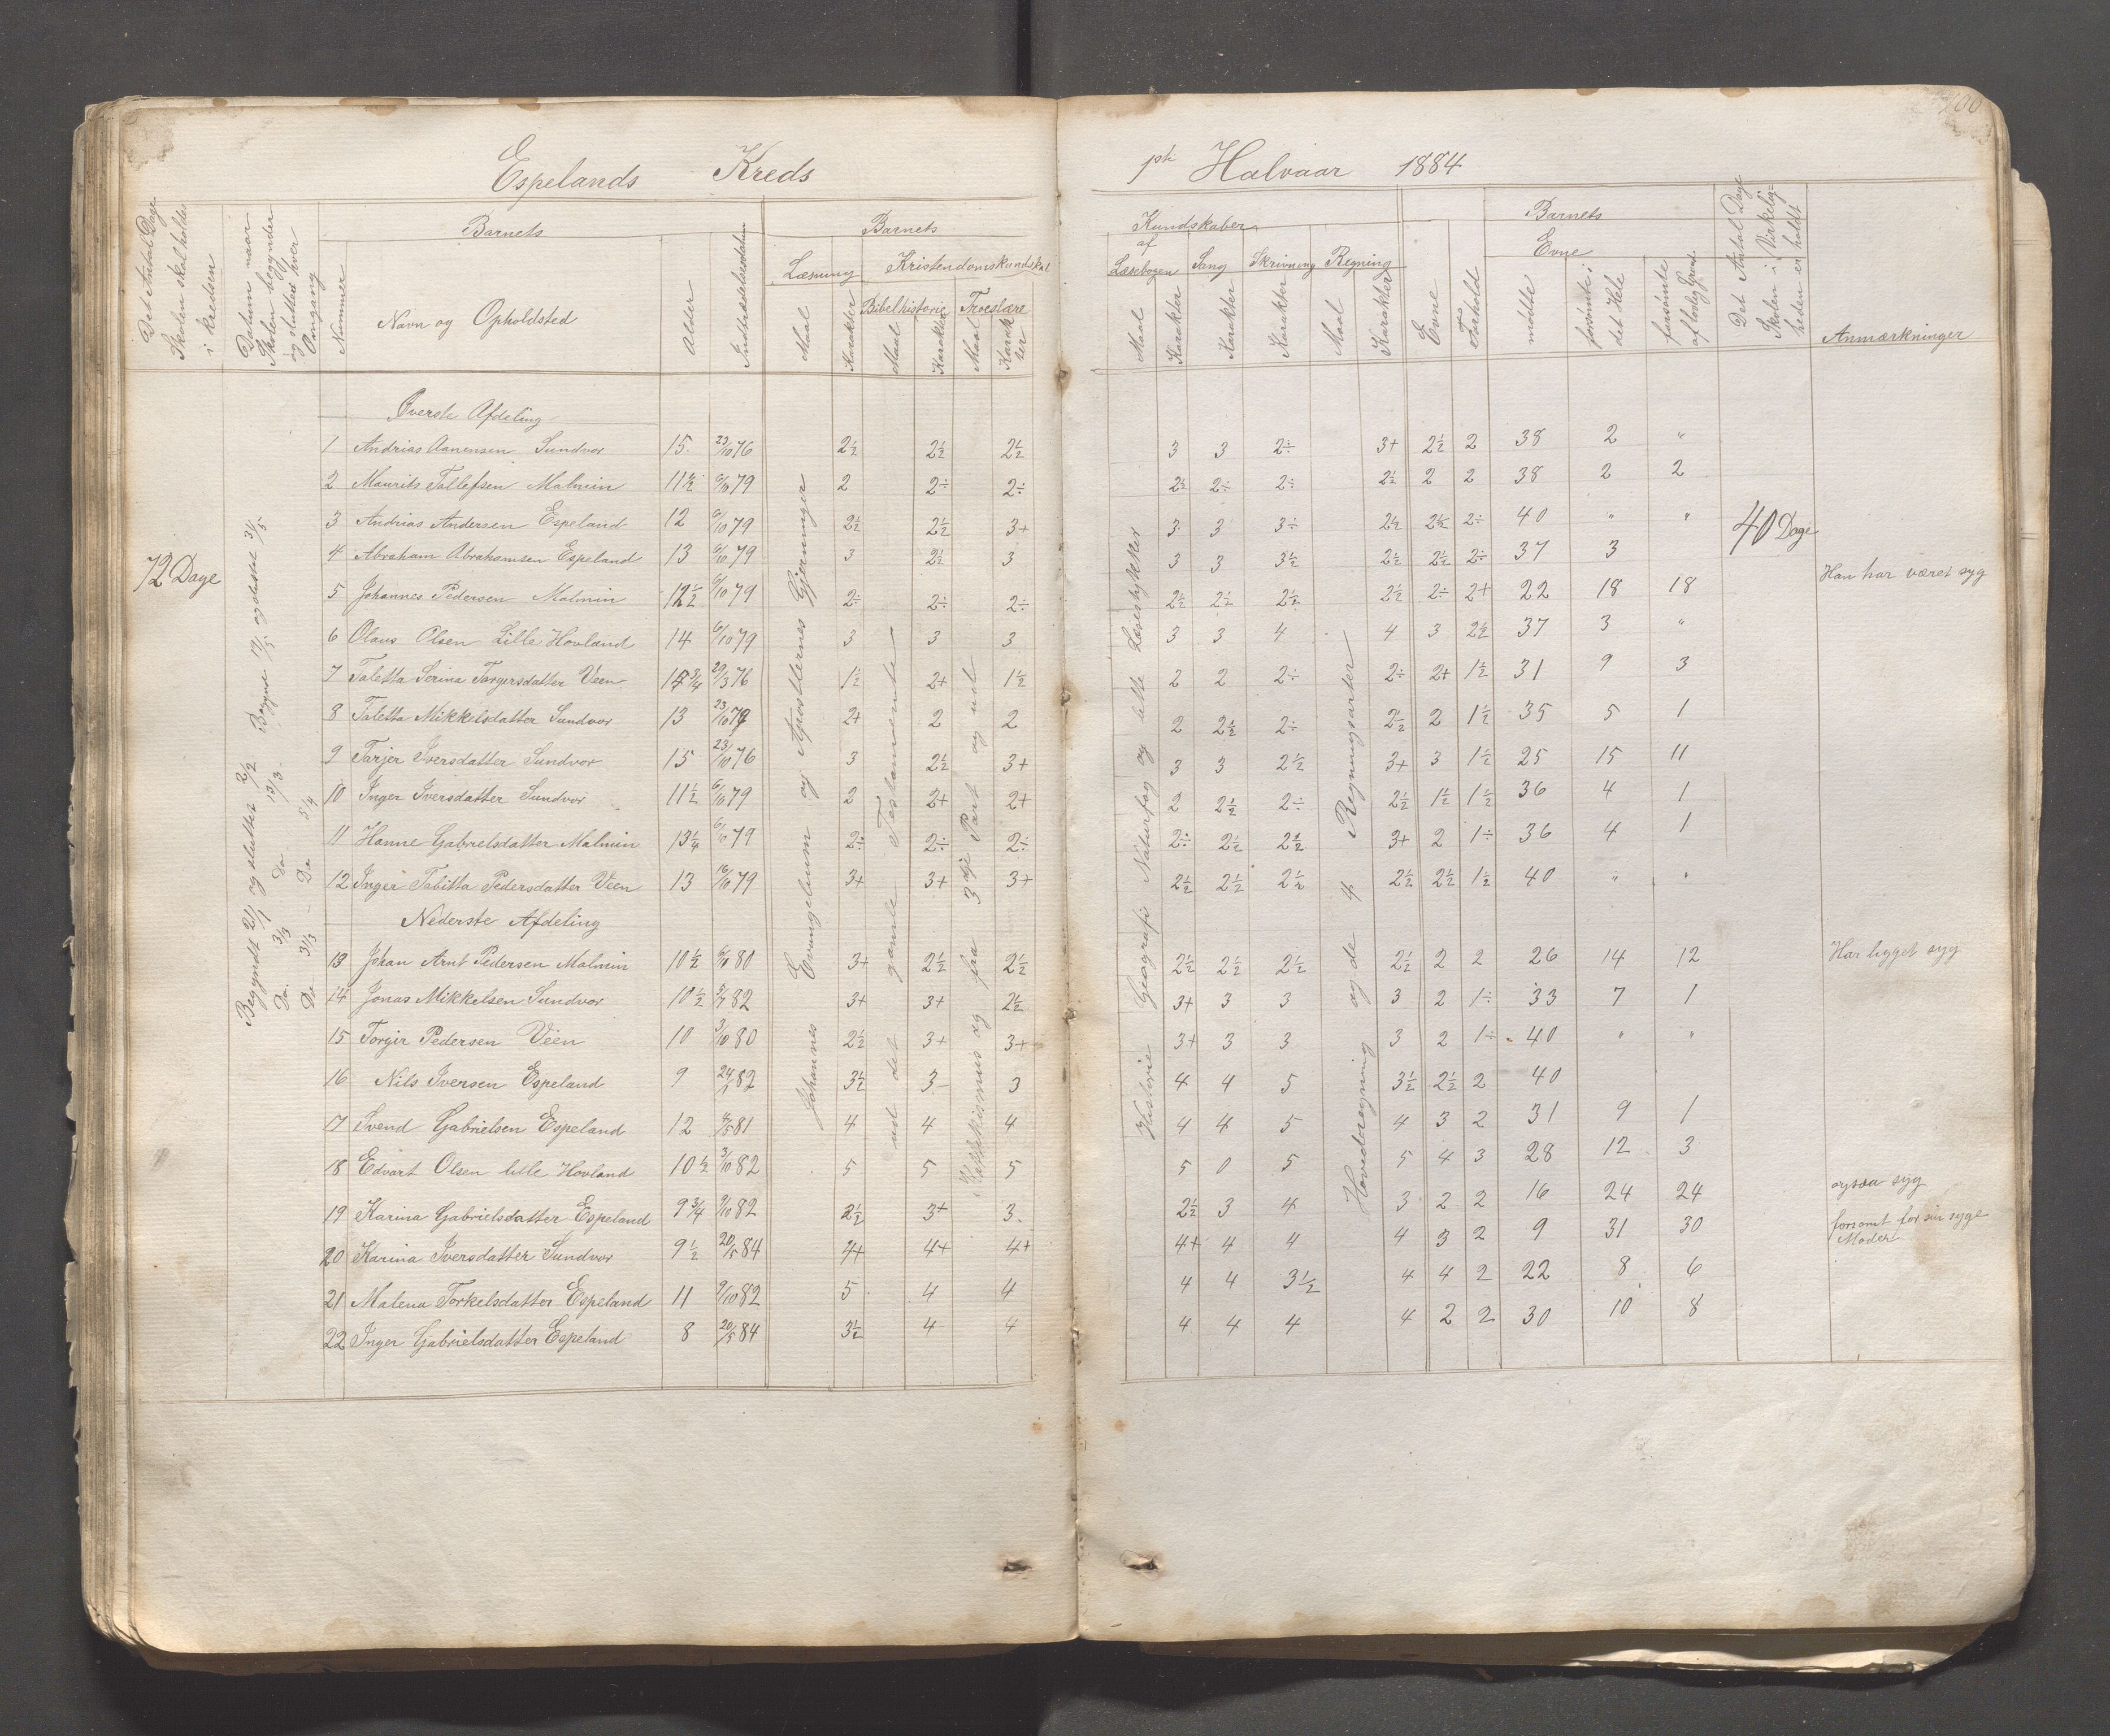 100
Espelands Kreds
1ste Halvaar 1884
Det Antal Dage Skolen skal holdes i kredsen
Datum naar Skolen begynder og sluttes hver Omgang
Nummer
Barnets
Navn og Opholdsted
Alder
Indtrædelsesdatum
Barnets
Læsning
Maal
Karakter
Kristendomskundskab
Bibelhistorie
Maal
Karakter
Troeslære
Maal
Karakter
Kundskaber
af Læsebogen
Maal
Karakter
Sang
Karakter
Skrivning
Karakter
Regning
Maal
Karakter
Evne
Forholdt
Barnets
Evne
mødte
forsømte i det Hele
forsømte af lovlig Grund
Det Antal Dage Skolen i Virkeligheden er holdt
Anmærkninger
72 Dage
Begyndt 21/1 og sluttet 2/2 Begynt 17/5 og sluttet 31/5
Do. 3/3 Do 13/3
Do 31/3 - Do 5/4
Johannes Evangelium og Apostlernes Gjerninger
ud det gamle Testamente
Katekismus og fra 3die Part og ud
Historie Geografi Naturfag og lette Læsestykker
Hovedregning og de 4 Regningsarter
40 Dage
Øverste Afdeling
1 Andrias Aanensen Sundvor 15 23/10 76 2½ 2½ 2½ 3 3 2÷ 3+ 2½ 2 38 2 "
2 Maurits Tollefsen Malmin 11½ 6/10 79 2 2÷ 2÷ 2½ 2÷ 2÷ 2½ 2 2 38 2 2
3 Andrias Andersen Espeland 12 6/10 79 2½ 2½ 3+ 3 3 3÷ 2½ 2½ 2÷ 40 " "
4 Abraham Abrahamsen Espeland 13 6/10 79 3 2½ 3 3 3 3½ 2½ 2½ 2÷ 37 3
5 Johannes Pedersen Malmin 12½ 6/10 79 2÷ 2÷ 2÷ 2½ 2½ 2½ 2½ 2÷ 2+ 22 18 18 Han har været syg
6 Olaus Olsen Lille Hovland 14 6/10 79 3 3 3 3 3 4 4 3 2½ 37 3 "
7 Taletta Serina Torgersdatter Veen 14¾ 29/3 76 1½ 2+ 1½ 2 2 2÷ 2÷ 2+ 1½ 31 9 3
8 Taletta Mikkelsdatter Sundvor 13 23/10 79 2+ 2 2 2 2½ 2÷ 2½ 2 1½ 35 5 1
9 Tarjer Iversdatter Sundvor 15 23/10 76 3 2½ 3+ 3 3 2½ 3+ 3 1½ 25 15 11
10 Inger Iversdatter Sundvor 11½ 6/10 79 2 2+ 2+ 2 2½ 2÷ 2½ 1½ 1½ 36 4 1
11 Hanne Gabrielsdatter Malmin 13¼ 6/10 79 2÷ 2÷ 2÷ 2÷ 2½ 2½ 3+ 2 1÷ 36 4 1
12 Inger Tabitta Pedersdatter Veen 13 16/10 79 3+ 3+ 3+ 2½ 2½ 2½ 2½ 2½ 1½ 40 " "
Nederste Afdeling
13 Johan Arnt Pedersen Malmin 10½ 6/10 80 3+ 2½ 2½ 2½ 2½ 2½ 2½ 2 2 26 14 12 Har ligget syg
14 Jonas Mikkelsen Sundvor 10½ 5/7 82 3+ 3+ 2½ 3+ 3 3 3 2 1÷ 33 7 1
15 Torgir Pedersen Veen 10 3/10 80 2½ 3+ 3+ 3+ 3 3 3 2 1÷ 40 " "
16 Nils Iversen Espeland 9 24/1 82 3½ 3 3 4 4 5 3½ 2½ 2 40
17 Svend Gabrielsen Espeland 12 4/5 81 4 4 4 4 4 5 4 3 2 31 9 1
18 Edvart Olsen lille Hovland 10½ 3/10 82 5 5 5 5 0 5 5 4 3 28 12 3
19 Karina Gabrielsdatter Espeland 9¾ 9/10 82 2½ 3+ 3 2½ 3 4 3 2 2 16 24 24 ogsaa syg
20 Karina Iversdatter Sundvor 9½ 20/5 84 4+ 4+ 4+ 4+ 4 4 4 3 2 9 31 30 forsømt for sin syge Moder
21 Malena Torkelsdatter Espeland 11 9/10 82 5 4 4 4 4 3½ 4 4 2 22 8 6
22 Inger Gabrielsdatter Espeland 8 20/5 84 3½ 4 4 4 4 4 4 2 2 30 10 8